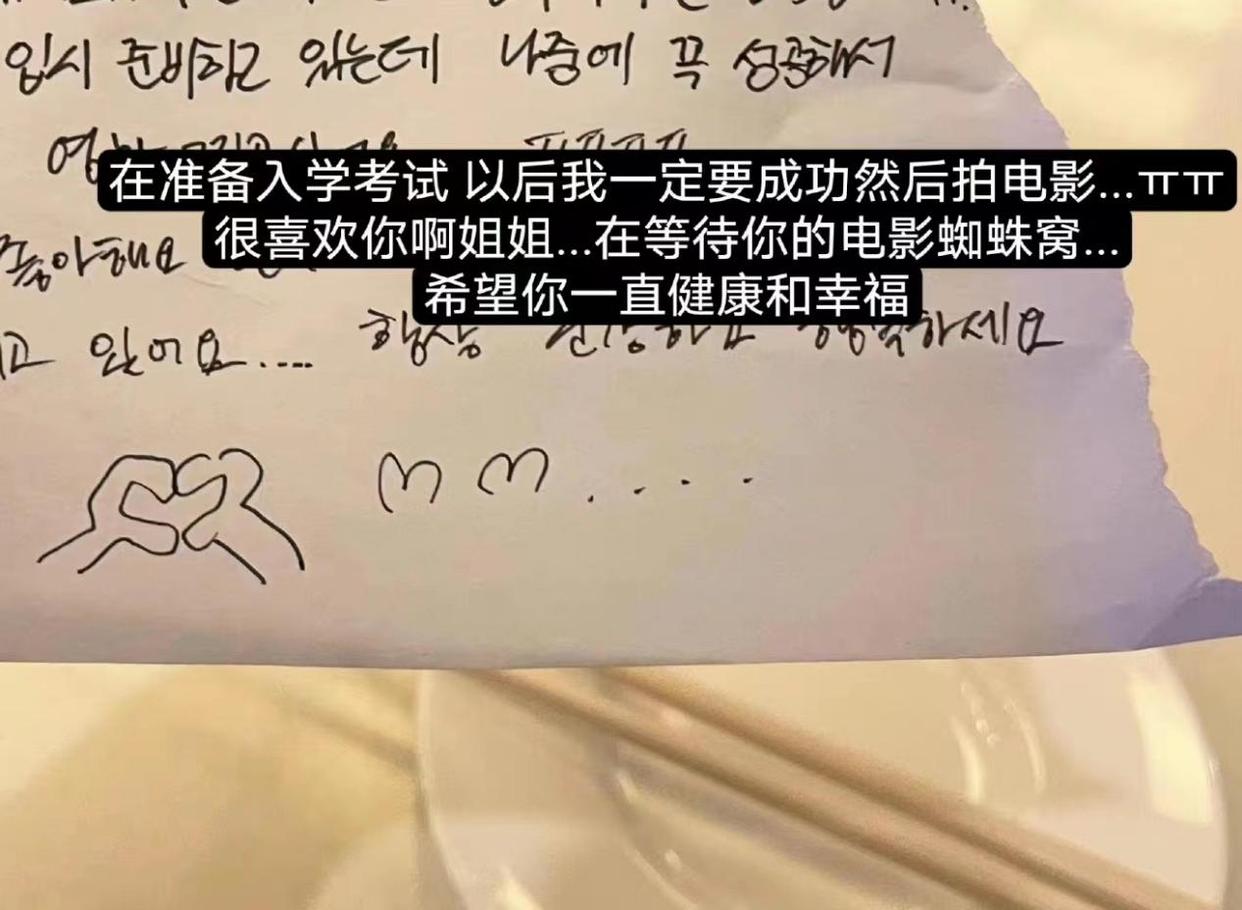 입시 준비하고 있는데 나중에 꼭 성공해서
在准备入学考试 以后我一定要成功然后拍电影...ㅠㅠ
좋아해요
很喜欢你啊姐姐...在等待你的电影蜘蛛窝...
希望你一直健康和幸福
고 있어요.... 항상 건강하고 행복하세요